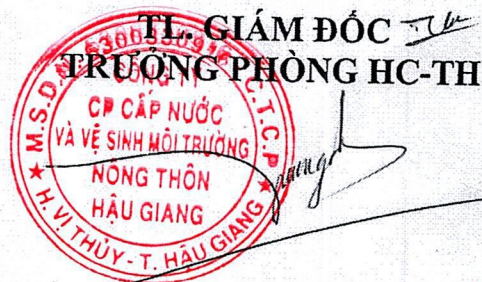 TL. GIÁM ĐỐC
TRƯỞNG PHÒNG HC-TH
C.T.C.P
CÔNG TY
CP CẤP NƯỚC
VÀ VỆ SINH MÔI TRƯỜNG
NÔNG THÔN
HẬU GIANG
H. VỊ THỦY - T. HẬU GIANG